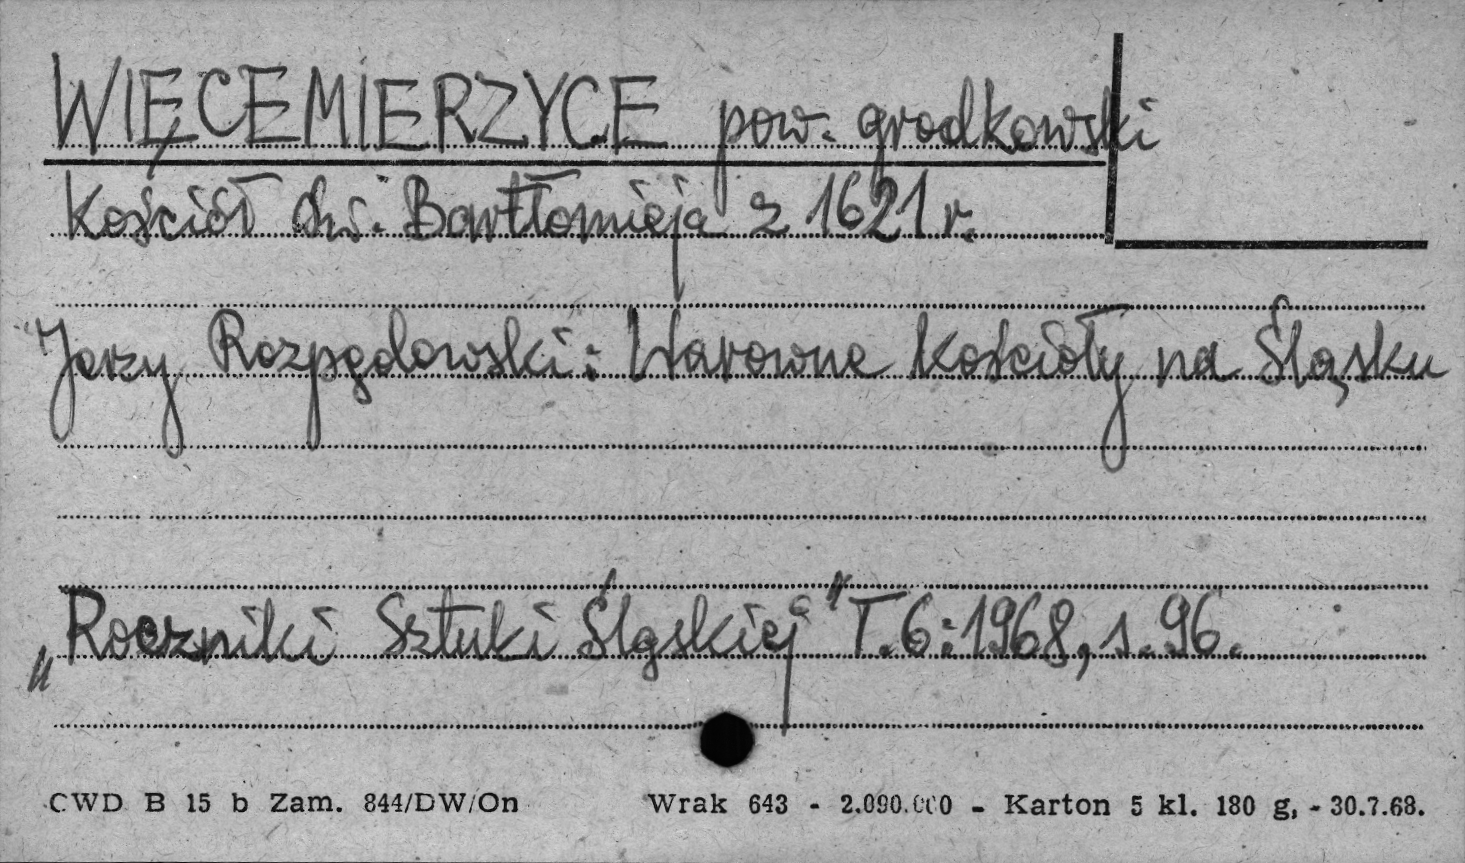 WIĘCEMIERZYCE pow. grodkowski
Kościół św. Bartłomieja z 1621 r.
Jerzy Rozpędowski: Warowne kościoły na Śląsku
„Roczniki Sztuki Śląskiej" T.6:1968, s.96.
CWD B 15 b Zam. 844/DW/On Wrak 643 - 2.090.000 - Karton 5 kl. 180 g, - 30.7.68.